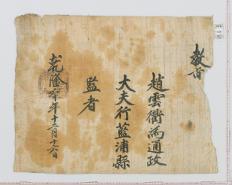 教旨
趙雲衢爲通政
大夫行藍浦縣
監者
乾隆年十二月十六日